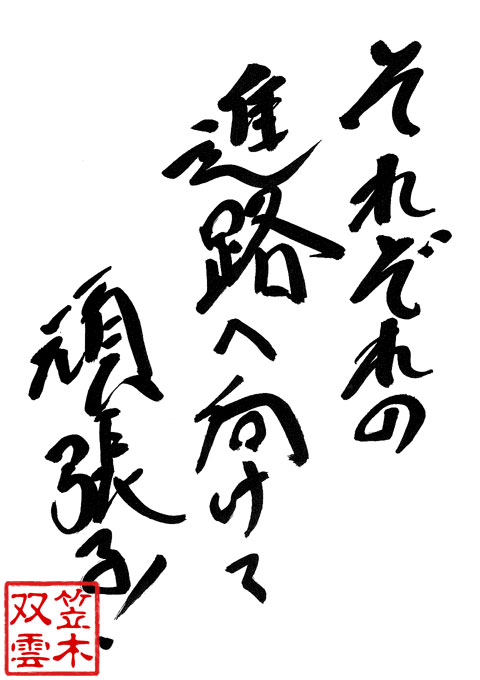 それぞれの
進路へ向けて
頑張る!
笠木
双雲